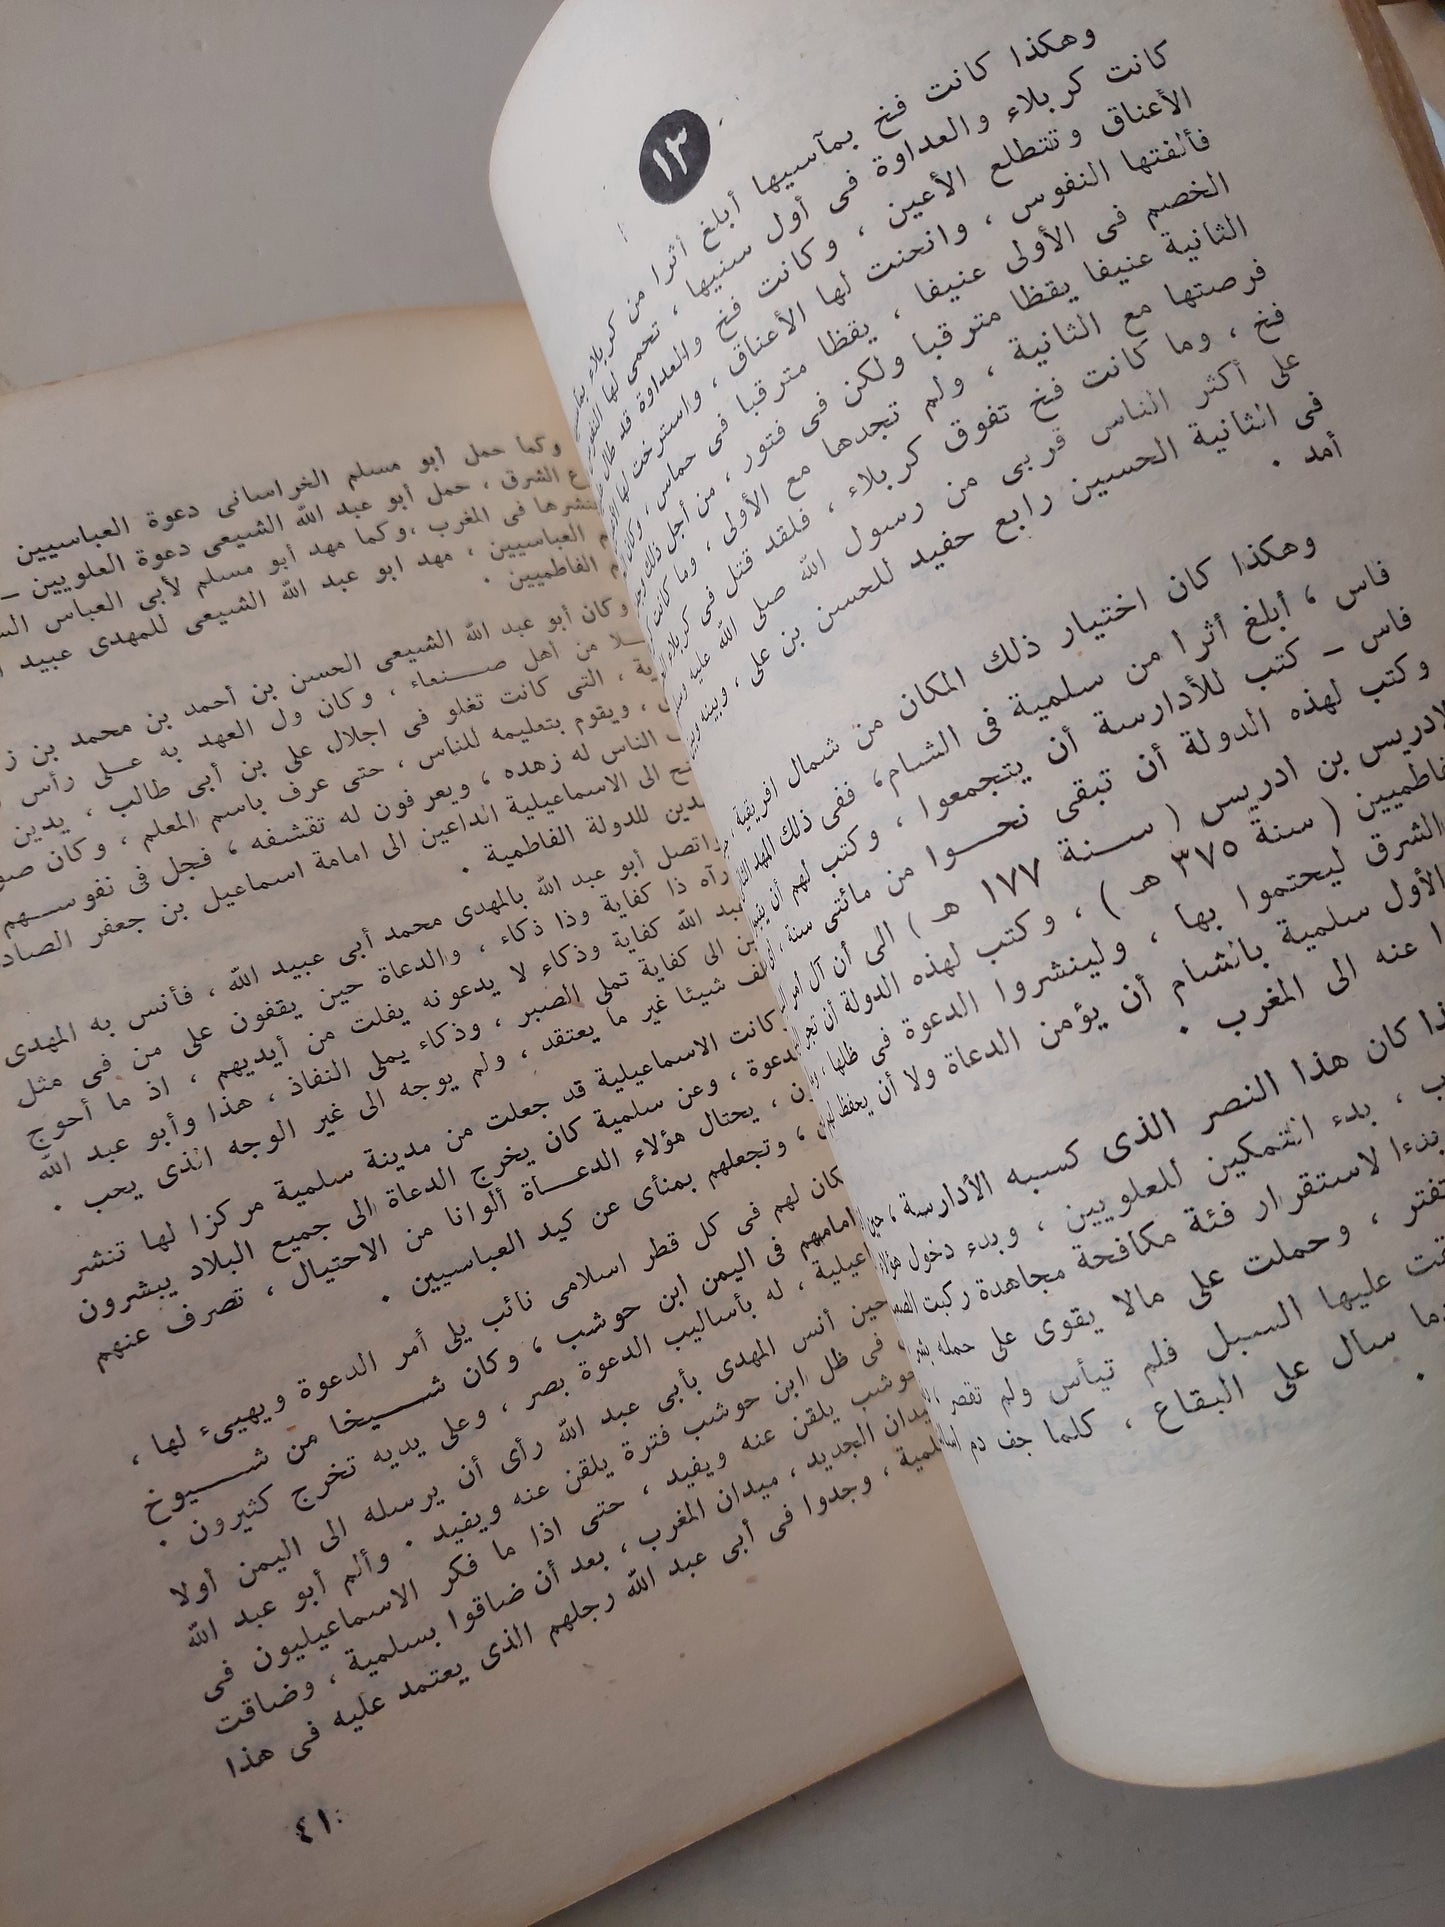 ١٣
وهكذا كانت فخ بمآسيها أبلغ أثرا من كربلاء
كانت كربلاء والعداوة فى أول سنيها ، تحمى لها النفوس
الأعناق وتتطلع الأعين ، وكانت فخ والعداوة قد طال
فألفتها النفوس ، وانحنت لها الأعناق ، واسترخت لها
الخصم فى الأولى عنيفا ، يقظا مترقبا فى حماس ، وكان
الثانية عنيفا يقظا مترقبا ولكن فى فتور ، من أجل ذلك
فرصتها مع الثانية ، ولم تجدها مع الأولى ، وما كانت
فخ ، وما كانت فخ تفوق كربلاء ، فلقد قتل فى كربلاء
على أكثر الناس قربى من رسول الله صلى الله عليه وسلم
فى الثانية الحسين رابع حفيد للحسن بن على ، وبينه وبين
أمد .
وهكذا كان اختيار ذلك المكان من شمال افريقية ،
فاس ، أبلغ أثرا من سلمية فى الشام ، ففى ذلك المهد
فاس – كتب للأدارسة أن يتجمعوا ، وكتب لهم أن
وكتب لهذه الدولة أن تبقى نحوا من مائتى سنة ،
لادريس بن ادريس ( سنة ١٧٧ هـ ) الى أن آل أمر
فاطميين ( سنة ٣٧٥ هـ ) ، وكتب لهذه الدولة أن
الشرق ليحتموا بها ، ولينشروا الدعوة فى ظلها ،
الأول سلمية بالشام أن يؤمن الدعاة ولا أن يحفظ
عنه الى المغرب .
كان هذا النصر الذى كسبه الأدارسة ،
، بدء التمكين للعلويين ، وبدء دخول
بدءا لاستقرار فئة مكافحة مجاهدة ركبت
تفتر ، وحملت على مالا يقوى على حمله
عليها السبل فلم تيأس ولم تقصر ،
سال على البقاع ، كلما جف دم
.
وكما حمل أبو مسلم الخراسانى دعوة العباسيين
الشرق ، حمل أبو عبد الله الشيعى دعوة العلويين –
ينشرها فى المغرب ، وكما مهد أبو مسلم لأبى العباس
العباسيين ، مهد ابو عبد الله الشيعى للمهدى عبيد
الفاطميين .
وكان أبو عبد الله الشيعى الحسن بن أحمد بن محمد بن
من أهل صنعاء ، وكان ول العهد به على رأس
، التى كانت تغلو فى اجلال على بن أبى طالب ، يدين
، ويقوم بتعليمه للناس ، حتى عرف باسم المعلم ، وكان
الناس له زهده ، ويعرفون له تقشفه ، فجل فى نفوسهم
الى الاسماعيلية الداعين الى امامة اسماعيل بن جعفر
للدولة الفاطمية .
واتصل أبو عبد الله بالمهدى محمد أبى عبيد الله ، فأنس به المهدى
رآه ذا كفاية وذا ذكاء ، والدعاة حين يقفون على من فى مثل
عبد الله كفاية وذكاء لا يدعونه يفلت من أيديهم ، اذ ما أحوج
الى كفاية تملى الصبر ، وذكاء يملى النفاذ ، هذا وأبو عبد الله
شيئا غير ما يعتقد ، ولم يوجه الى غير الوجه الذى يحب .
كانت الاسماعيلية قد جعلت من مدينة سلمية مركزا لها تنشر
، وعن سلمية كان يخرج الدعاة الى جميع البلاد يبشرون
، يحتال هؤلاء الدعاة ألوانا من الاحتيال ، تصرف عنهم
، وتجعلهم بمنأى عن كيد العباسيين .
كان لهم فى كل قطر اسلامى نائب يلى أمر الدعوة ويهيىء لها ،
امامهم فى اليمن ابن حوشب ، وكان شيخا من شيوخ
، له بأساليب الدعوة بصر ، وعلى يديه تخرج كثيرون .
حين أنس المهدى بأبى عبد الله رأى أن يرسله الى اليمن أولا
فى ظل ابن حوشب فترة يلقن عنه ويفيد . وألم أبو عبد الله
حوشب يلقن عنه ويفيد ، حتى اذا ما فكر الاسماعيليون فى
الجديد ، ميدان المغرب ، بعد أن ضاقوا بسلمية ، وضاقت
، وجدوا فى أبى عبد الله رجلهم الذى يعتمد عليه فى هذا
٤١